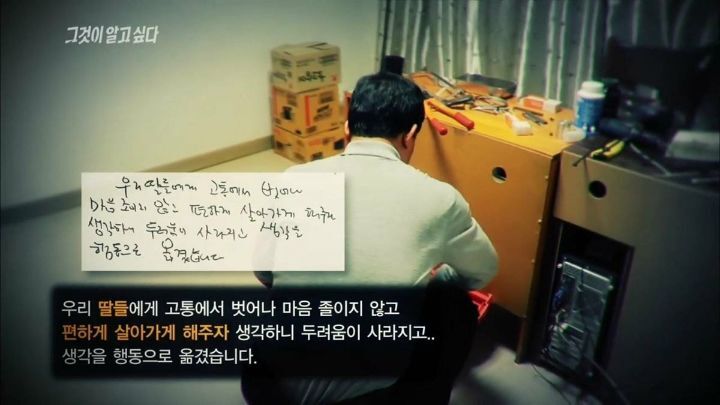 그것이 알고 싶다
우리 딸들에게 고통에서 벗어나
마음 졸이지 않고 편하게 살아가게 해주자
생각하니 두려움이 사라지고 생각을
행동으로 옮겼습니다
우리 딸들에게 고통에서 벗어나 마음 졸이지 않고
편하게 살아가게 해주자 생각하니 두려움이 사라지고..
생각을 행동으로 옮겼습니다.